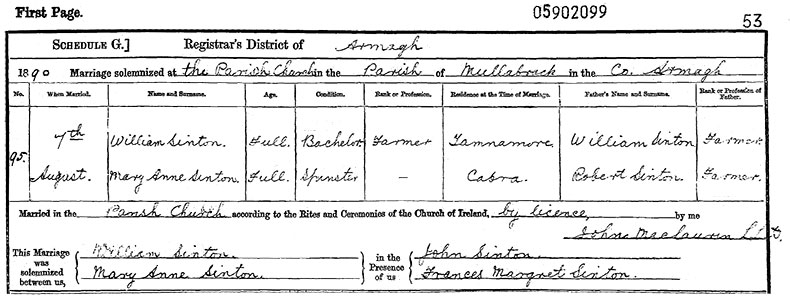 First Page. 05902099 53
SCHEDULE G.] Registrar's District of Armagh
1890 Marriage solemnized at the Parish Church in the Parish of Mullabrack in the Co. Armagh
No. When Married. Name and Surname. Age. Condition. Rank or Profession. Residence at the Time of Marriage. Father's Name and Surname. Rank or Profession of Father.
7th William Sinton. Full. Bachelor Farmer Tamnamore. William Sinton Farmer.
95.
August. Mary Anne Sinton. Full. Spinster — Cabra. Robert Sinton. Farmer.
Married in the Parish Church according to the Rites and Ceremonies of the Church of Ireland, by licence, by me
John Maclaurin
This Marriage was solemnized between us, William Sinton. in the Presence of us John Sinton.
Mary Anne Sinton. Frances Margret Sinton.